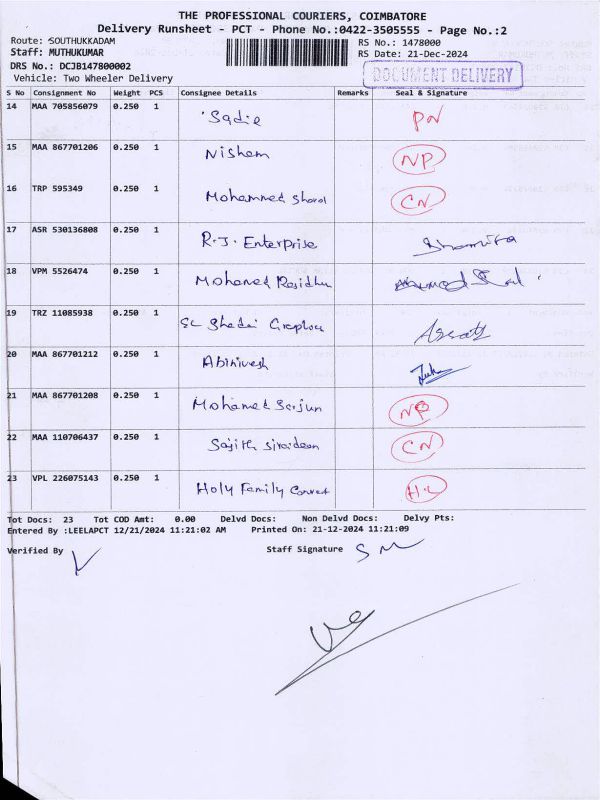 THE PROFESSIONAL COURIERS, COIMBATORE
Delivery Runsheet - PCT - Phone No.:0422-3505555 - Page No.:2
Route: SOUTHUKKADAM RS No.: 1478000
Staff: MUTHUKUMAR RS Date: 21-Dec-2024
DRS No.: DCJB147800002
Vehicle: Two Wheeler Delivery DOCUMENT DELIVERY
S No Consignment No Weight PCS Consignee Details Remarks Seal & Signature
14 MAA 705856079 0.250 1 Sadie PN
15 MAA 867701206 0.250 1 Nishem NP
16 TRP 595349 0.250 1 Mohammed CN
17 ASR 530136808 0.250 1 R.J. Enterprise
18 VPM 5526474 0.250 1 Mohamed
19 TRZ 11085938 0.250 1
20 MAA 867701212 0.250 1 Abinivesh
21 MAA 867701208 0.250 1 Mohamed Sarjun NP
22 MAA 110706437 0.250 1 Sajith CN
23 VPL 226075143 0.250 1 Holy Family
Tot Docs: 23 Tot COD Amt: 0.00 Delvd Docs: Non Delvd Docs: Delvy Pts:
Entered By :LEELAPCT 12/21/2024 11:21:02 AM Printed On: 21-12-2024 11:21:09
Verified By Staff Signature